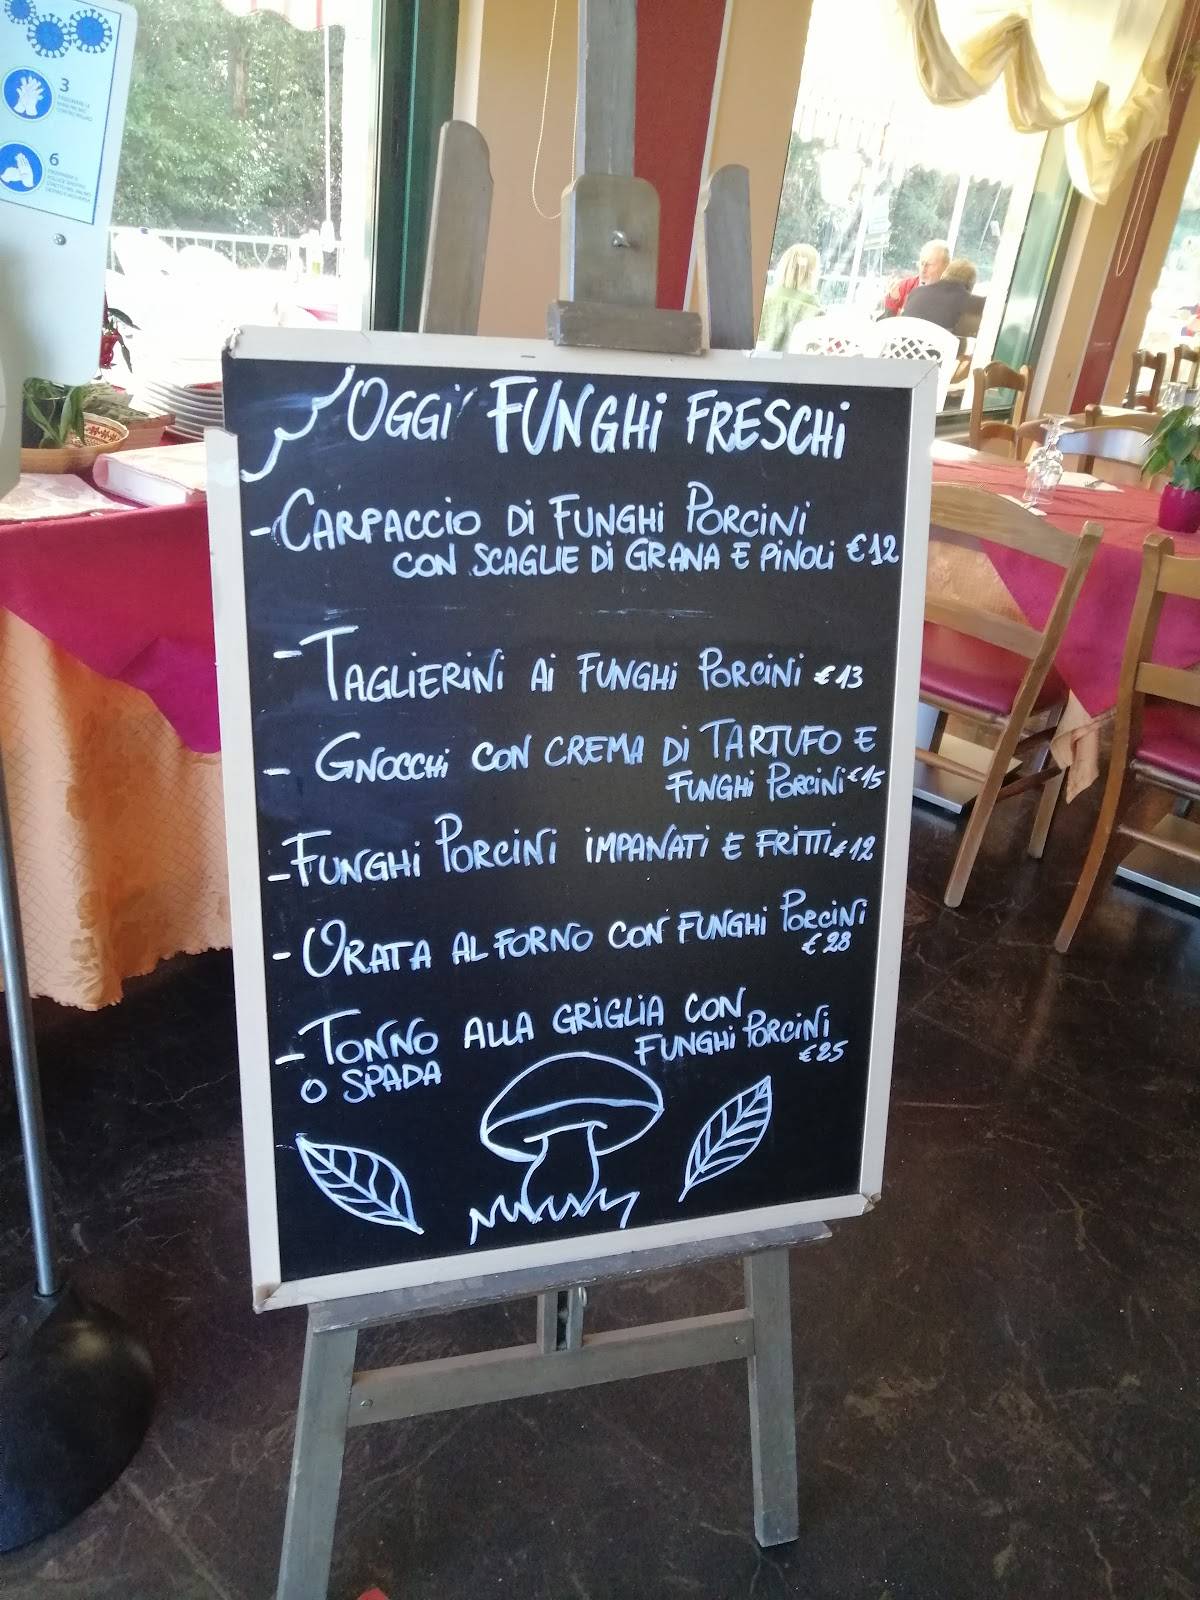 3
6
OGGI FUNGHI FRESCHI
- CARPACCIO DI FUNGHI PORCINI
CON SCAGLIE DI GRANA E PINOLI €12
- TAGLIERINI AI FUNGHI PORCINI €13
- GNOCCHI CON CREMA DI TARTUFO E
FUNGHI PORCINI €15
- FUNGHI PORCINI IMPANATI E FRITTI €12
- ORATA AL FORNO CON FUNGHI PORCINI
€28
- TONNO ALLA GRIGLIA CON
FUNGHI PORCINI
O SPADA
€25